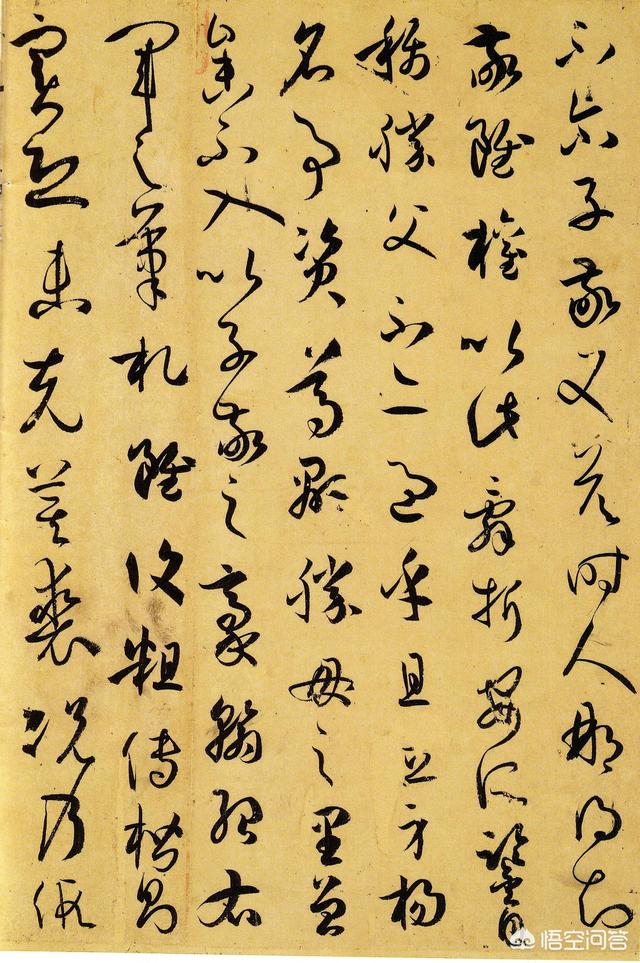 不爾子敬又答時人那得知
敬雖權以此辭折安所鑒自
稱勝父不亦過乎且立身揚
名事資尊顯勝母之里曾
參不入以子敬之豪翰紹右
軍之筆札雖復粗傳楷則
實恐未克箕裘況乃假
悟空问答